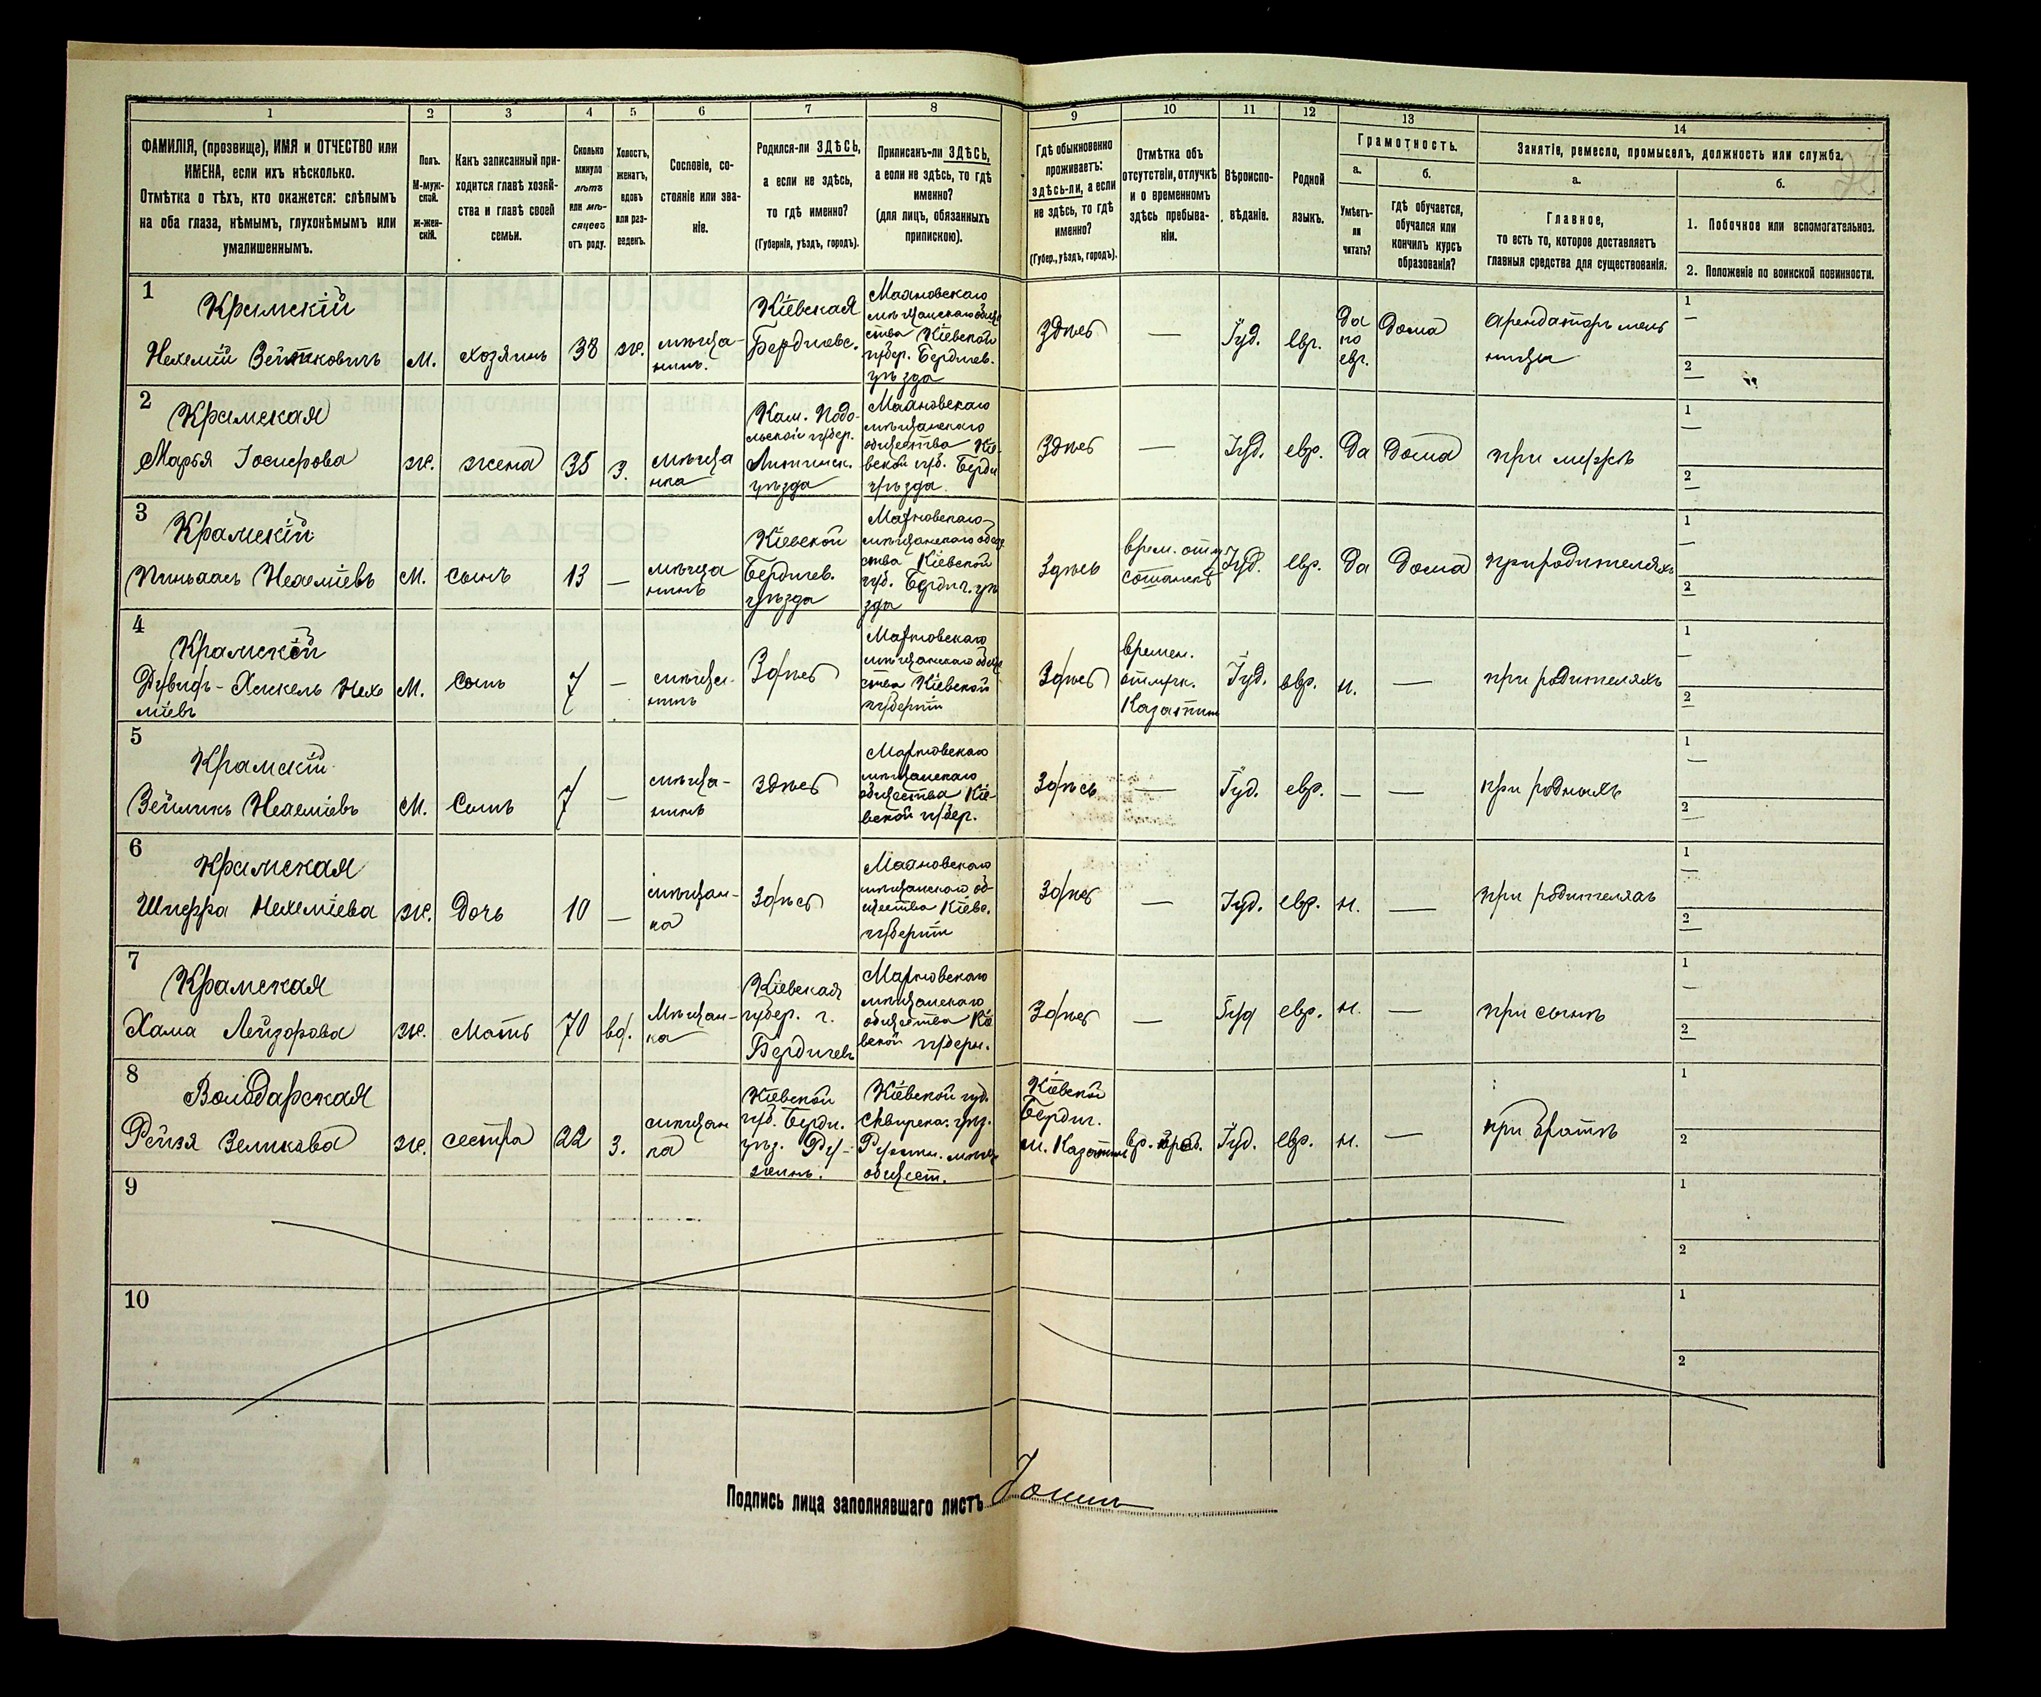 1 2 3 4 5 6 7 8 9 10 11 12 13 14
ФАМИЛІЯ, (прозвище), ИМЯ и ОТЧЕСТВО или
ИМЕНА, если ихъ нѣсколько.
Отмѣтка о тѣхъ, кто окажется: слѣпымъ
на оба глаза, нѣмымъ, глухонѣмымъ или
умалишеннымъ.
Полъ.
М-муж-
ской.
ж-жен-
скій.
Какъ записанный при-
ходится главѣ хозяй-
ства и главѣ своей
семьи.
Сколько
минуло
лѣтъ
или мѣ-
сяцевъ
отъ роду.
Холостъ,
женатъ,
вдовъ
или раз-
веденъ.
Сословіе, со-
стояніе или зва-
ніе.
Родился-ли ЗДѢСЬ,
а если не здѣсь,
то гдѣ именно?
(Губернія, уѣздъ, городъ).
Приписанъ-ли ЗДѢСЬ,
а если не здѣсь, то гдѣ
именно?
(для лицъ, обязанныхъ
припискою).
Гдѣ обыкновенно
проживаетъ:
здѣсь-ли, а если
не здѣсь, то гдѣ
именно?
(Губер., уѣздъ, городъ).
Отмѣтка объ
отсутствіи, отлучкѣ
и о временномъ
здѣсь пребыва-
ніи.
Вѣроиспо-
вѣданіе.
Родной
языкъ.
Грамотность.
а.
Умѣетъ-
ли
читать?
б.
Гдѣ обучается,
обучался или
кончилъ курсъ
образованія?
Занятіе, ремесло, промыселъ, должность или служба.
а.
Главное,
то есть то, которое доставляетъ
главныя средства для существованія.
б.
1. Побочное или вспомогательное.
2. Положеніе по воинской повинности.
1
Крамскій
Нехемій Вейтковичъ
м.
хозяинъ
38
ж.
мѣща-
нинъ.
Кіевская
Бердичевс.
Кіевской
губер. Бердичев.
уѣзда
Здѣсь
—
Іуд.
евр.
да
по
евр.
Дома
арендаторъ мель
ницы
1
2
2
Крамская
Марья Іосиерова
ж.
жена
35
з.
мѣща
нка
Кам. Подо-
льской губер.
Литинск.
уѣзда
мѣщанскаго
общества Кіе-
вской губ. Берди
уѣзда
Здѣсь
—
Іуд.
евр.
да
Дома
при мужѣ
1
2
3
Крамскій
Пинхасъ Нехеміевъ
м.
сынъ
13
—
мѣща
нинъ
Кіевской
Бердичев.
уѣзда
мѣщанскаго общ
ства Кіевской
губ. Бердич. уѣ
зда
Здѣсь
Іуд.
евр.
да
Дома
при родителяхъ
1
2
4
Крамскій
Дувидъ-Хискель Нехе
міевъ
м.
сынъ
7
—
мѣща-
нинъ
Здѣсь
мѣщанскаго обще
ства Кіевской
губерніи
Здѣсь
времен.
отлуч.
Казатинъ
Іуд.
евр.
н.
—
при родителяхъ
1
2
5
Крамскій
Нехеміевъ
м.
Сынъ
7
—
мѣща-
нинъ
Здѣсь
мѣщанскаго
общества Кіе-
вской губер.
Здѣсь
—
Іуд.
евр.
—
—
при родныхъ
1
2
6
Крамская
Шифра Нехеміева
ж.
Дочь
10
—
мѣщан-
ка
Здѣсь
мѣщанскаго об-
щества Кіевс.
губерніи
Здѣсь
—
Іуд.
евр.
н.
—
при родителяхъ
1
2
7
Крамская
Хама Лейзорова
ж.
Мать
70
вд.
Мѣщан-
ка
Кіевская
губер. г.
Бердичевъ
мѣщанскаго
общества Кіе
вской губерн.
Здѣсь
—
Іуд
евр.
н.
—
при сынѣ
1
2
8
Володарская
Рейзя Зеликова
ж.
сестра
22
з.
мѣщан
ка
Кіевской
губ. Берди.
уѣз. Ру-
жинъ.
Кіевской губ.
Сквирск. уѣз.
Ружин. мѣщ
общест.
Кіевской
Бердич.
м. Казатинъ
вр. преб.
Іуд.
евр.
н.
—
при братѣ
1
2
9
1
2
10
1
2
Подпись лица заполнявшаго листъ